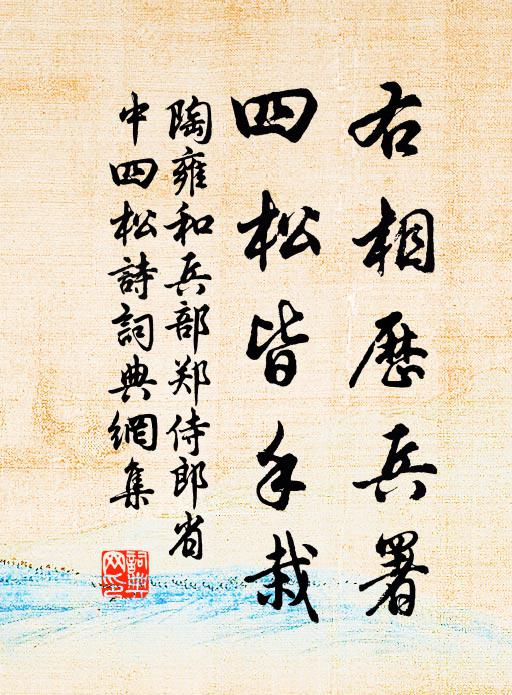 右相歷兵署
四松皆手栽
陶雍和兵部郑侍郎省
中四松詩詞典網集